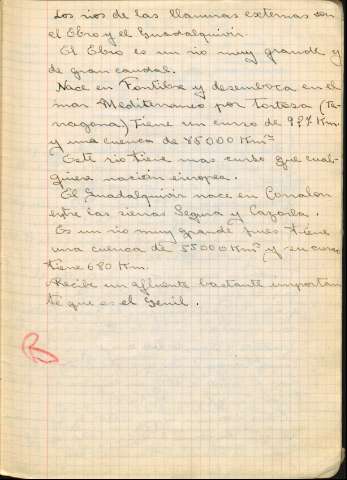 Los rios de las llanuras externas son
el Ebro y el Guadalquivir.
El Ebro es un rio muy grande y
de gran caudal.
Nace en Fontibre y desemboca en el
mar Mediterraneo por Tortosa (Ta-
ragona) Tiene un curso de 927 Km.
y una cuenca de 85000 Km²
Este rio tiene mas curso que cual-
quiera nación europea.
El Guadalquivir nace en
entre las sierras Segura y Cazorla.
Es un rio muy grande pues tiene
una cuenca de 55000 Km² y su curso
tiene 680 Km.
Recibe un afluente bastante importan
te que es el Genil.
B